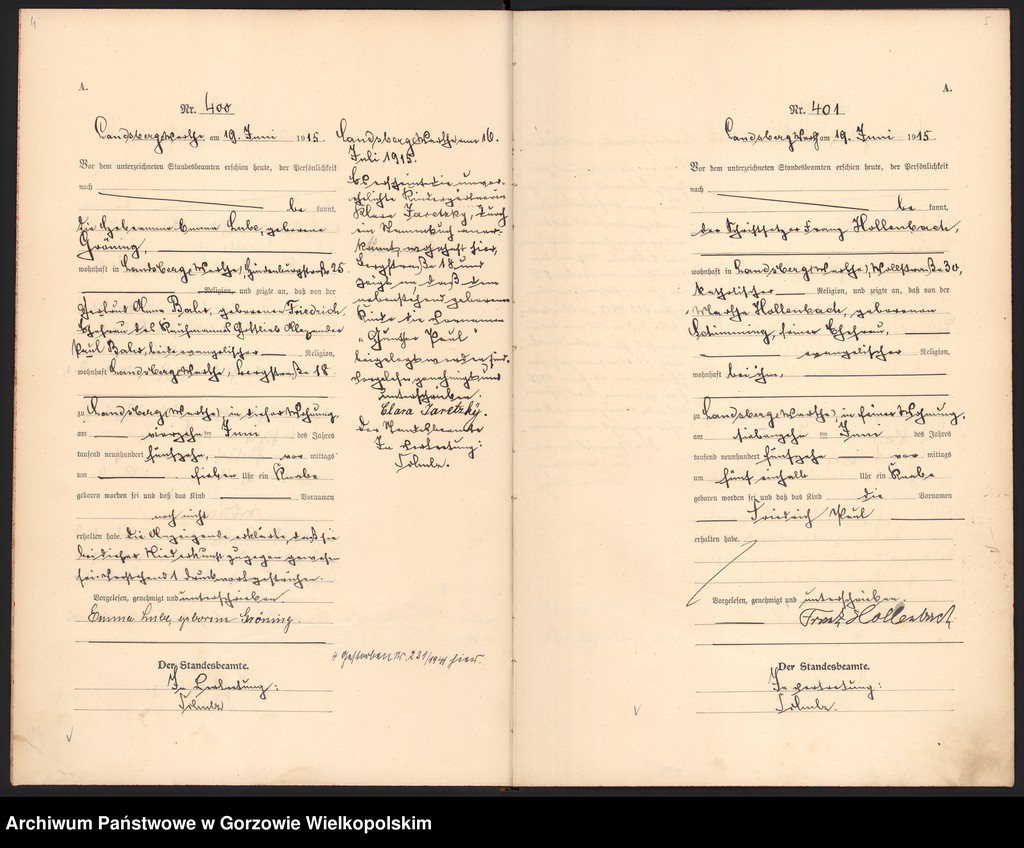 4
A.
Nr. 400
Landsberg Warthe, am 19. Juni 1915.
Vor dem unterzeichneten Standesbeamten erschien heute, der Persönlichkeit
nach
be kannt,
die Hebeamme Emma Lube, geborene
Gröning,
wohnhaft in Landsberg (Warthe), Hindenburgstraße 25
Religion, und zeigte an, daß von der
Anna Bahr, geborenen Friedrich,
Ehefrau des Kaufmanns Gottlieb Alexander
Paul Bahr, beide evangelischer Religion,
wohnhaft Landsberg Warthe, Bergstraße 18
zu Landsberg (Warthe), in dieser Wohnung,
am vierzehn ten Juni des Jahres
tausend neunhundert fünfzehn, vor mittags
um sieben Uhr ein Knabe
geboren worden sei und daß das Kind Vornamen
noch nicht
erhalten habe. Die Anzeigende erklärte, daß sie
bei dieser Niederkunft zugegen gewesen
sei. Vorstehend 1 Druckwort gestrichen.
Vorgelesen, genehmigt und unterschrieben.
Emma Lube, geborene Gröning.
Der Standesbeamte.
In Vertretung:
Landsberg Warthe, am 16.
Juli 1915.
Es erscheint die unver-
ehelichte Kindergärtnerin
Klara Jaretzky, durch
ein Stammbuch aner-
kannt, wohnhaft hier,
Bergstraße 18 und
zeigt an, daß dem
nebenstehend geborenen
Kinde die Vornamen
"Günther Paul"
beigelegt worden sind.
Vorgelesen, genehmigt und
unterschrieben.
Clara Jaretzky.
Der Standesbeamte
In Vertretung:
† Gestorben Nr. 231/1941 hier.
5
A.
Nr. 401
Landsberg Warthe am 19. Juni 1915.
Vor dem unterzeichneten Standesbeamten erschien heute, der Persönlichkeit
nach
be kannt,
der Schriftsetzer Franz Hollenbach,
wohnhaft in Landsberg (Warthe), Wallstraße 30,
katholischer Religion, und zeigte an, daß von der
Martha Hollenbach, geborenen
Schimming, seiner Ehefrau,
evangelischer Religion,
wohnhaft bei ihm,
zu Landsberg (Warthe), in seiner Wohnung,
am siebenzehn ten Juni des Jahres
tausend neunhundert fünfzehn vor mittags
um fünf einhalb Uhr ein Knabe
geboren worden sei und daß das Kind die Vornamen
Friedrich Paul
erhalten habe.
Vorgelesen, genehmigt und unterschrieben.
Franz Hollenbach
Der Standesbeamte.
In Vertretung:
Archiwum Państwowe w Gorzowie Wielkopolskim